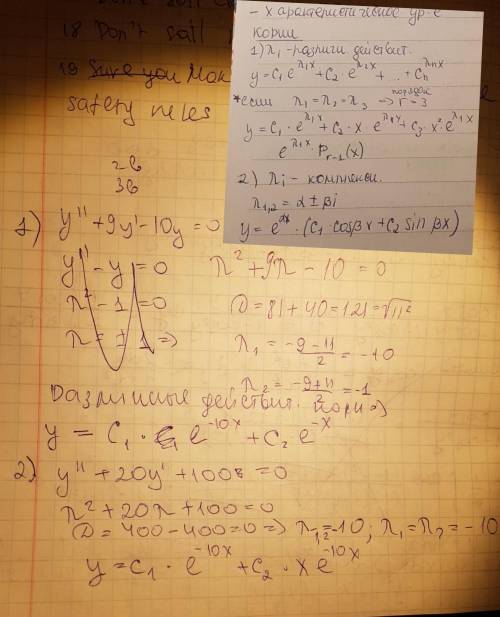 18 Don't sail
19 Sure you Mak
safety rules
2б
3б
- характеристическое ур-е
корни
1) λ₁ - различн действит.
y = C₁ e^{λ₁x} + C₂ e^{λ₂x} + ... + Cₙ e^{λₙx}
*если λ₁ = λ₂ = λ₃ порядок => r = 3
y = C₁ · e^{λ₁x} + C₂ · x · e^{λ₁x} + C₃ · x² · e^{λ₁x}
e^{λ₁x} · P_{r-1}(x)
2) λi - комплексн.
λ₁,₂ = α ± βi
y = e^{αx} · (C₁ · cosβx + C₂ sin βx)
1) y'' + 9y' - 10y = 0
y'' - y = 0
λ² - 1 = 0
λ = ± 1 =>
λ² + 9λ - 10 = 0
D = 81 + 40 = 121 = √11²
λ₁ = (-9-11)/2 = -10
λ₂ = (-9+11)/2 = -1
Различные действит. корни =>
y = C₁ · e^{-10x} + C₂ e^{-x}
2) y'' + 20y' + 100 = 0
λ² + 20λ + 100 = 0
D = 400 - 400 = 0 => λ₁,₂ = -10; λ₁ = λ₂ = -10
y = C₁ · e^{-10x} + C₂ · x e^{-10x}